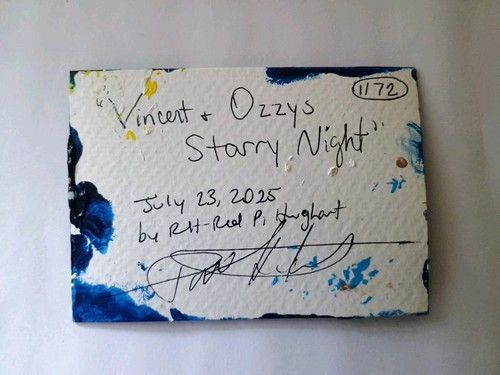 1172
"Vincent + Ozzys
Starry Night"
July 23, 2025
by RH-Red P. Hughart